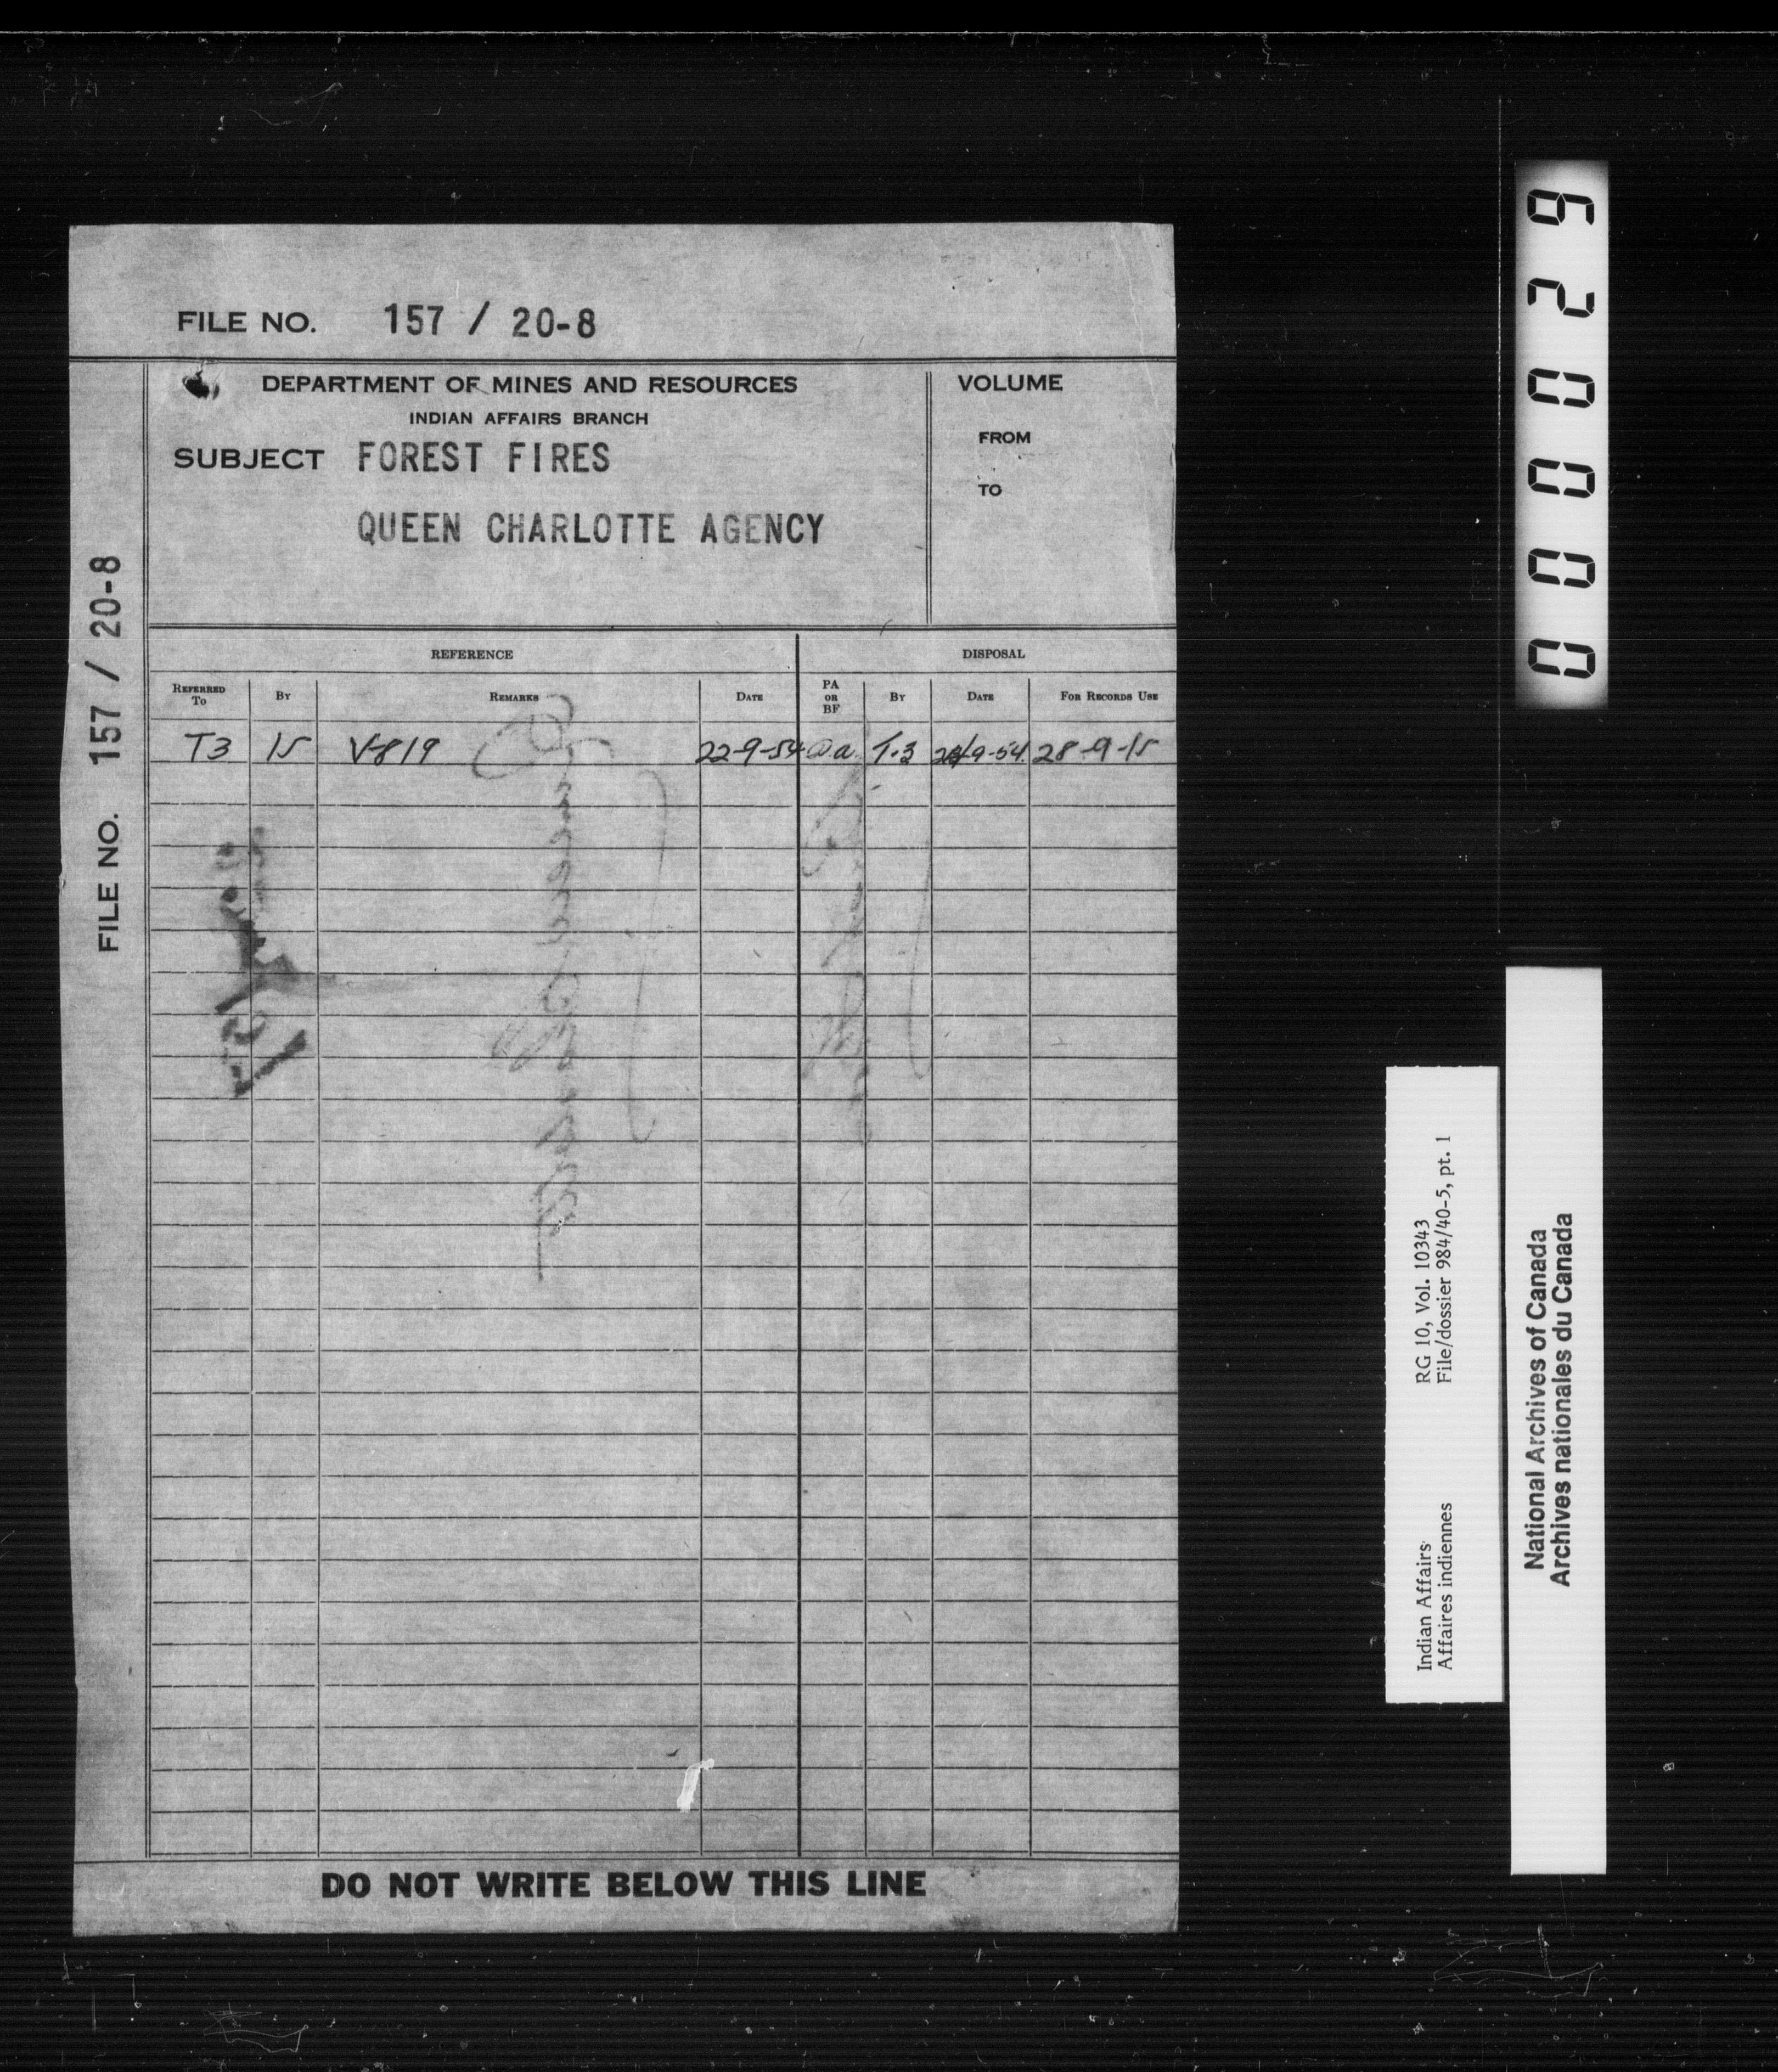 FILE NO. 157 / 20-8
DEPARTMENT OF MINES AND RESOURCES
INDIAN AFFAIRS BRANCH
SUBJECT FOREST FIRES
QUEEN CHARLOTTE AGENCY
VOLUME
FROM
TO
FILE NO. 157 / 20-8
REFERENCE DISPOSAL
REFERRED TO BY REMARKS DATE PA OR BF BY DATE FOR RECORDS USE
T3 15 V-819 22-9-54 T.3 9-54 28-9-15
DO NOT WRITE BELOW THIS LINE
000029
Indian Affairs RG 10, Vol. 10343
Affaires indiennes File/dossier 984/40-5, pt. 1
National Archives of Canada
Archives nationales du Canada